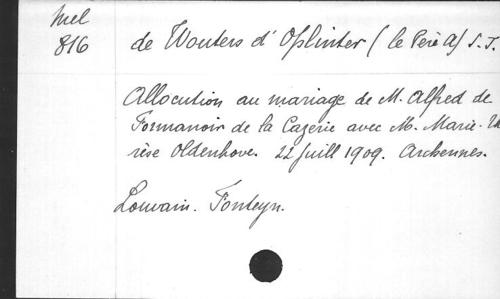 Mel
816
de Wouters d'Oplinter (le Père A) S.J.
Allocution au mariage de M. Alfred de
Formanoir de la Cazerie avec M. Marie-Thé
rèse Oldenhove. 22 juill 1909. Archennes.
Louvain. Fonteyn.